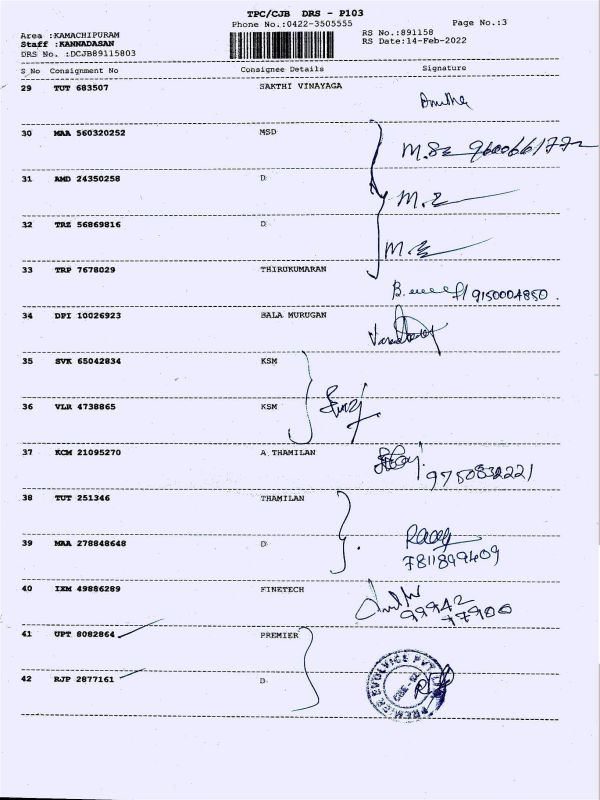 TPC/CJB DRS - P103
Phone No.:0422-3505555
Page No.:3
Area :KAMACHIPURAM
RS No.:891158
Staff :KANNADASAN
RS Date:14-Feb-2022
DRS No. :DCJB89115803
S_No Consignment No Consignee Details Signature
29 TUT 683507 SAKTHI VINAYAGA
30 MAA 560320252 MSD
31 AMD 24350258 D
32 TRZ 56869816 D
33 TRP 7678029 THIRUKUMARAN
B. 9150004850.
34 DPI 10026923 BALA MURUGAN
35 SVK 65042834 KSM
36 VLR 4738865 KSM
37 KCM 21095270 A.THAMILAN
9750832221
38 TUT 251346 THAMILAN
39 MAA 278848648 D
7811899409
40 IXM 49886289 FINETECH
99942
77906
41 UPT 8082864 PREMIER
42 RJP 2877161 D
PREMIER EVOLVICS PVT